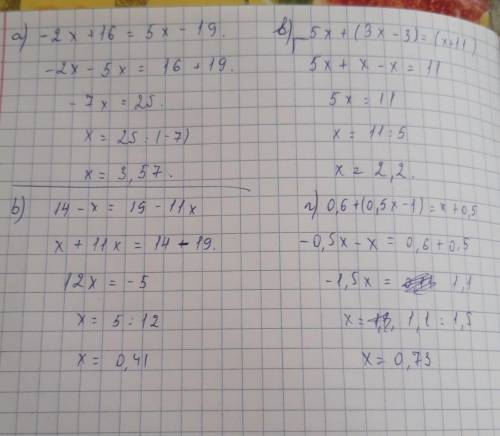 а) -2x+16 = 5x - 19.
-2x - 5x = 16 + 19.
-7x = 25.
x = 25 : (-7)
x = 3,57.
b) 14 - x = 19 - 11x
x + 11x = 14 - 19.
12x = -5
x = 5 : 12
x = 0,41
в) 5x + (3x - 3) = (x+11)
5x + x - x = 11
5x = 11
x = 11 : 5
x = 2,2.
г) 0,6 + (0,5x - 1) = x + 0,5
-0,5x - x = 0,6 + 0,5
-1,5x = 1,1
x = 1,1 : 1,5
x = 0,73